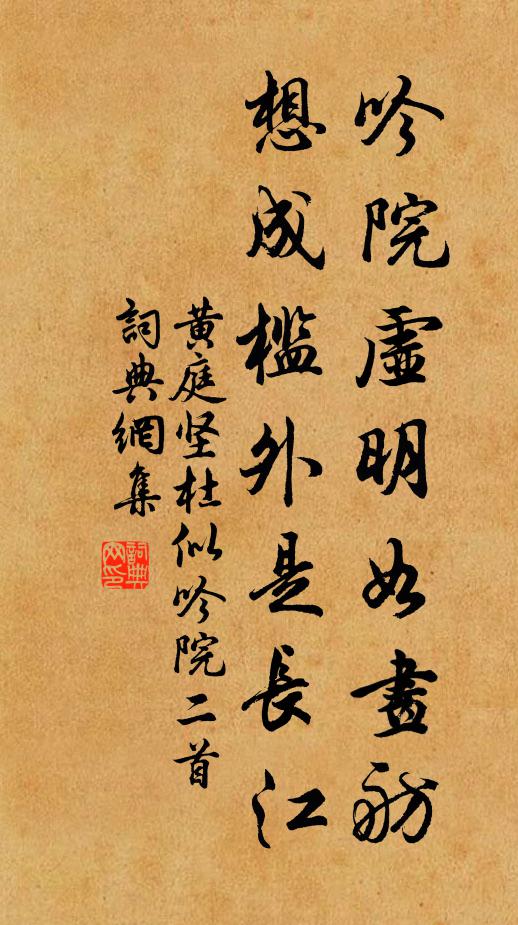 吟院虛明如畫舫
想成檻外是長江
黃庭坚杜似吟院二首
詞典網集
詞典網印